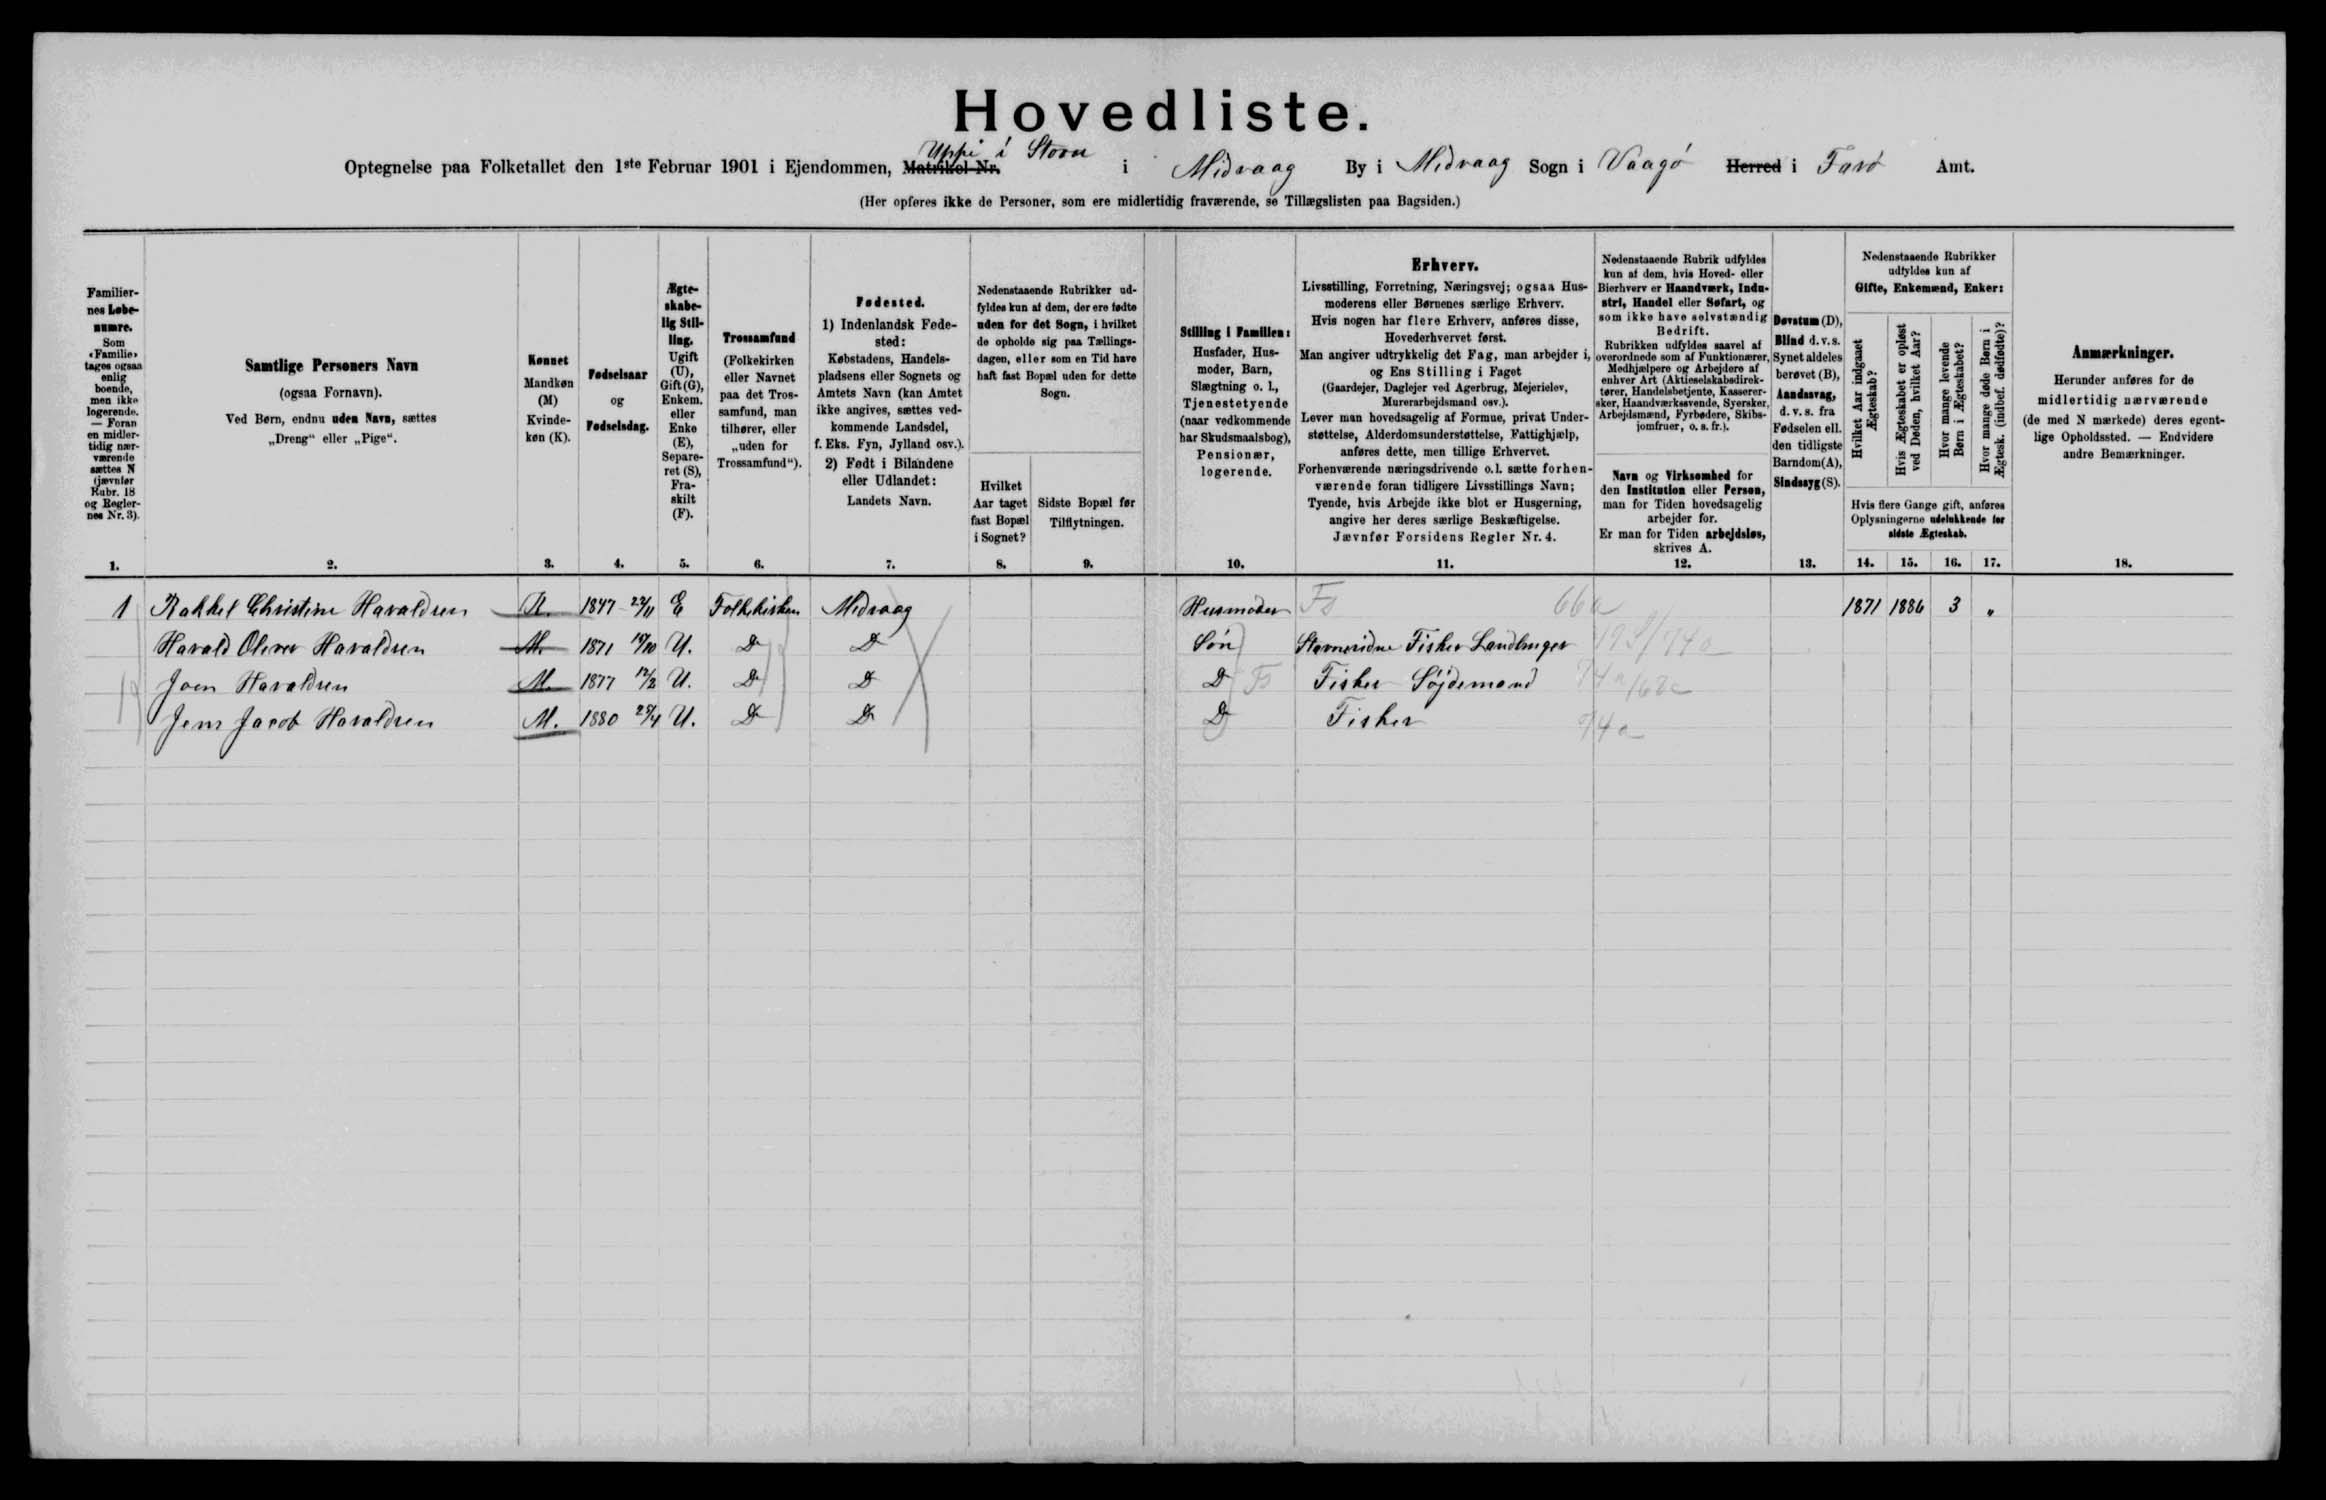 Hovedliste.
Optegnelse paa Folketallet den 1ste Februar 1901 i Ejendommen, Matrikel-Nr. Uppi í Stovu i Midvaag By i Midvaag Sogn i Vaagø Herred i Færø Amt.
(Her opføres ikke de Personer, som ere midlertidig fraværende, se Tillægslisten paa Bagsiden.)
Familier-
nes Løbe-
numre.
Som
«Familie»
tages ogsaa
enlig
boende,
men ikke
logerende.
— Foran
en midler-
tidig nær-
værende
sættes N
(jævnfør
Rubr. 18
og Regler-
nes Nr. 3).
1.
Samtlige Personers Navn
(ogsaa Fornavn).
Ved Børn, endnu uden Navn, sættes
„Dreng“ eller „Pige“.
2.
Kønnet
Mandkøn
(M)
Kvinde-
køn (K).
3.
Fødselsaar
og
Fødselsdag.
4.
Ægte-
skabe-
lig Stil-
ling.
Ugift
(U),
Gift (G),
Enkem.
eller
Enke
(E),
Separe-
ret (S),
Fra-
skilt
(F).
5.
Trossamfund
(Folkekirken
eller Navnet
paa det Tros-
samfund, man
tilhører, eller
„uden for
Trossamfund“).
6.
Fødested.
1) Indenlandsk Føde-
sted:
Købstadens, Handels-
pladsens eller Sognets og
Amtets Navn (kan Amtet
ikke angives, sættes ved-
kommende Landsdel,
f. Eks. Fyn, Jylland osv.).
2) Født i Bilandene
eller Udlandet:
Landets Navn.
7.
Nedenstaaende Rubrikker ud-
fyldes kun af dem, der ere fødte
uden for det Sogn, i hvilket
de opholde sig paa Tællings-
dagen, eller som en Tid have
haft fast Bopæl uden for dette
Sogn.
Hvilket
Aar taget
fast Bopæl
i Sognet?
8.
Sidste Bopæl før
Tilflytningen.
9.
Stilling i Familien:
Husfader, Hus-
moder, Barn,
Slægtning o. l.,
Tjenestetyende
(naar vedkommende
har Skudsmaalsbog),
Pensionær,
logerende.
10.
Erhverv.
Livsstilling, Forretning, Næringsvej; ogsaa Hus-
moderens eller Børnenes særlige Erhverv.
Hvis nogen har flere Erhverv, anføres disse,
Hovederhvervet først.
Man angiver udtrykkelig det Fag, man arbejder i,
og Ens Stilling i Faget
(Gaardejer, Daglejer ved Agerbrug, Mejerielev,
Murerarbejdsmand osv.).
Lever man hovedsagelig af Formue, privat Under-
støttelse, Alderdomsunderstøttelse, Fattighjælp,
anføres dette, men tillige Erhvervet.
Forhenværende næringsdrivende o.l. sætte forhen-
værende foran tidligere Livsstillings Navn;
Tyende, hvis Arbejde ikke blot er Husgerning,
angive her deres særlige Beskæftigelse.
Jævnfør Forsidens Regler Nr. 4.
11.
Nedenstaaende Rubrik udfyldes
kun af dem, hvis Hoved- eller
Bierhverv er Haandværk, Indu-
stri, Handel eller Søfart, og
som ikke have selvstændig
Bedrift.
Rubrikken udfyldes saavel af
overordnede som af Funktionærer,
Medhjælpere og Arbejdere af
enhver Art (Aktieselskabsdirek-
tører, Handelsbetjente, Kasserer-
sker, Haandværkssvende, Syersker,
Arbejdsmænd, Fyrbødere, Skibs-
jomfruer, o. s. fr.).
Navn og Virksomhed for
den Institution eller Person,
man for Tiden hovedsagelig
arbejder for.
Er man for Tiden arbejdsløs,
skrives A.
12.
Døvstum (D),
Blind d. v. s.
Synet aldeles
berøvet (B),
Aandssvag,
d. v. s. fra
Fødselen ell.
den tidligste
Barndom (A),
Sindssyg (S).
13.
Nedenstaaende Rubrikker
udfyldes kun af
Gifte, Enkemænd, Enker:
Hvilket Aar indgaaet
Ægteskab?
Hvis Ægteskabet er opløst
ved Døden, hvilket Aar?
Hvor mange levende
Børn i Ægteskabet?
Hvor mange døde Børn i
Ægtesk. (indbef. dødfødte)?
Hvis flere Gange gift, anføres
Oplysningerne udelukkende for
sidste Ægteskab.
14. 15. 16. 17.
Anmærkninger.
Herunder anføres for de
midlertidig nærværende
(de med N mærkede) deres egent-
lige Opholdssted. — Endvidere
andre Bemærkninger.
18.
1 Rakkel Christine Havaldsen K. 1847 22/11 E Folkekirken Midvaag Husmoder Fs 66a 1871 1886 3 „
Harald Oliver Havaldsen M. 1871 19/10 U. Do Do Søn Fisker Landbruger 74a
Joen Havaldsen M. 1877 12/2 U. Do Do D Fs Fisker Söjdemand 74a/62c
Jens Jacob Havaldsen M. 1880 29/4 U. Do Do D Fisker 74a